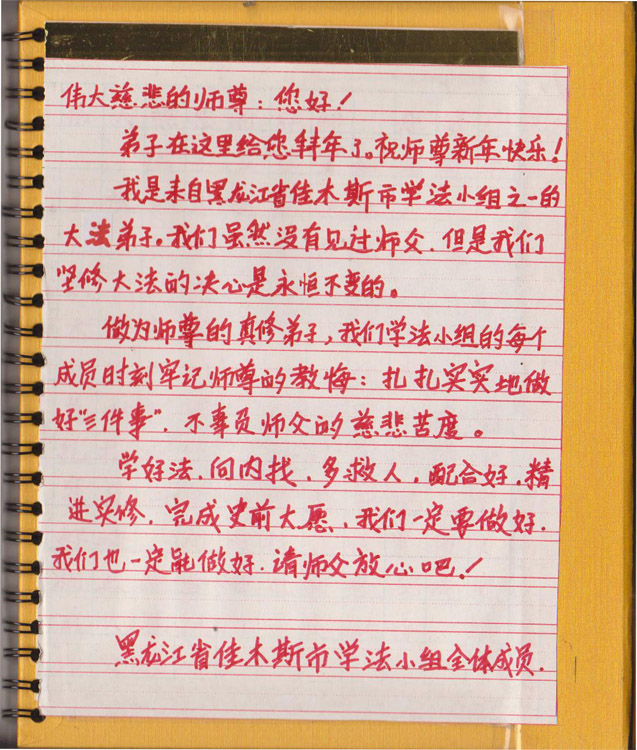 伟大慈悲的师尊：您好！
弟子在这里给您拜年了。祝师尊新年快乐！
我是来自黑龙江省佳木斯市学法小组之一的
大法弟子。我们虽然没有见过师父．但是我们
坚修大法的决心是永恒不变的。
做为师尊的真修弟子，我们学法小组的每个
成员时刻牢记师尊的教悔：扎扎实实地做
好“三件事”．不辜负师父的慈悲苦度。
学好法．向内找，多救人，配合好，精
进实修．完成史前大愿，我们一定要做好．
我们也一定能做好．请师父放心吧！
黑龙江省佳木斯市学法小组全体成员．